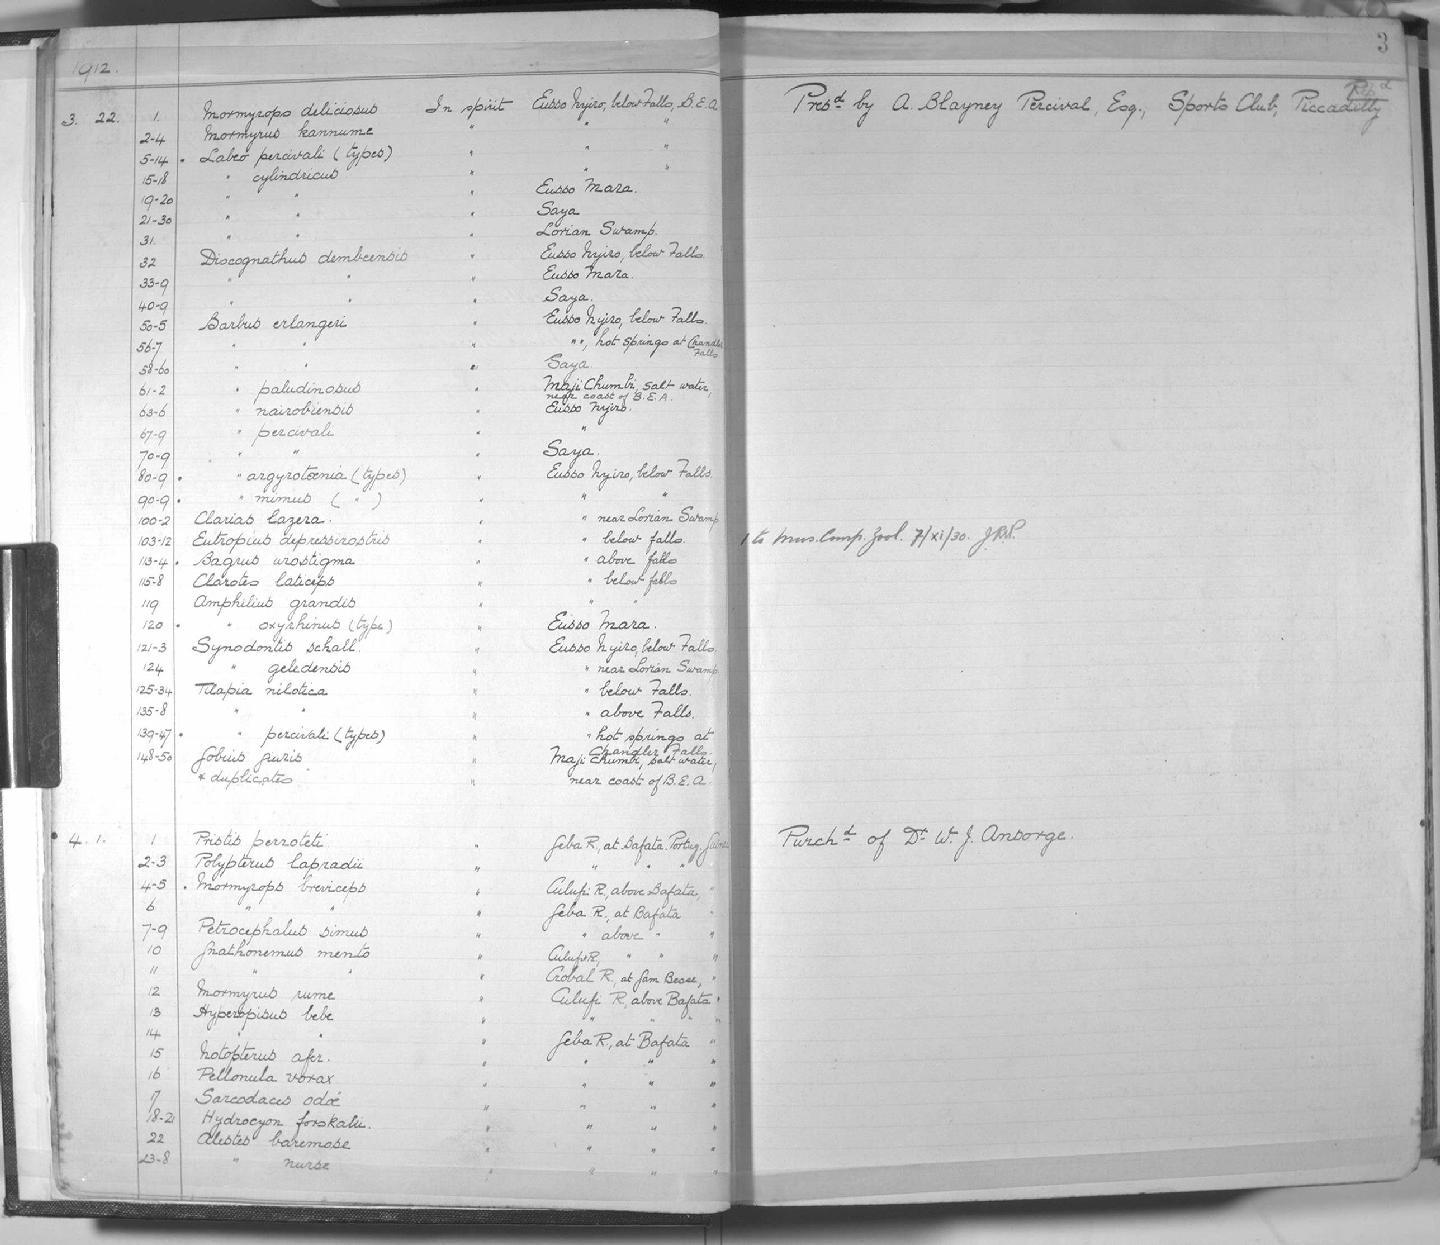 1912.
3
3. 22. 1. Mormyrops deliciosus In spirit Eusso Nyiro, below Falls, B.E.A. Presd by A. Blayney Percival, Esq., Sports Club, Piccadilly
2-4 Mormyrus kannume " " "
5-14 • Labeo percivali (types) " " "
15-18 " cylindricus " " "
19-20 " " " Eusso Mara.
21-30 " " " Saya
31. " " " Lorian Swamp.
32 Discognathus dembeensis " Eusso Nyiro, below Falls.
33-9 " " " Eusso Mara.
40-9 " " " Saya.
50-5 Barbus erlangeri " Eusso Nyiro, below Falls.
56-7 " " " " ", hot springs at Chandler Falls
58-60 " " " Saya.
61-2 " paludinosus " Maji Chumbi, salt water,
near coast of B.E.A.
63-6 " nairobiensis " Eusso Nyiro.
67-9 " percivali " "
70-9 " " " Saya.
80-9 • " argyrotænia (types) " Eusso Nyiro, below Falls.
90-9 • " mimus ( " ) " " "
100-2 Clarias lazera. " " near Lorian Swamp
103-12 Eutropius depressirostris " " below falls. 1 to Mus. Comp. Zool. 7/xi/30.
113-4 • Bagrus urostigma " " above falls
115-8 Clarotes laticeps " " below falls
119 Amphilius grandis " " "
120 • " oxyrhinus (type) " Eusso Mara.
121-3 Synodontis schall. " Eusso Nyiro, below Falls.
124 " geledensis " " near Lorian Swamp
125-34 Tilapia nilotica " " below Falls.
135-8 " " " " above Falls.
139-47 • " percivali (types) " " hot springs at
Chandler Falls.
148-50 Gobius giuris " Maji Chumbi, salt water,
* duplicates " near coast of B.E.A.
4. 1. 1 Pristis perroteti " Geba R., at Bafata. Portug. Guinea Purchd of Dr W. J. Ansorge.
2-3 Polypterus lapradii " " " "
4-5 • Mormyrops breviceps " Culufi R., above Bafata, "
6 " " " Geba R., at Bafata "
7-9 Petrocephalus simus " " above " "
10 Gnathonemus mento " Culufi R., " " "
11 " " " Corbal R., at Gam Besse, "
12 Mormyrus rume " Culufi R., above Bafata "
13 Hyperopisus bebe " " " " "
14 " " " Geba R., at Bafata "
15 Notopterus afer. " " " "
16 Pellonula vorax " " "
17 Sarcodaces odoë " " " "
18-21 Hydrocyon forskalii. " " " "
22 Alestes baremose " " " "
23-8 " nurse " " " "